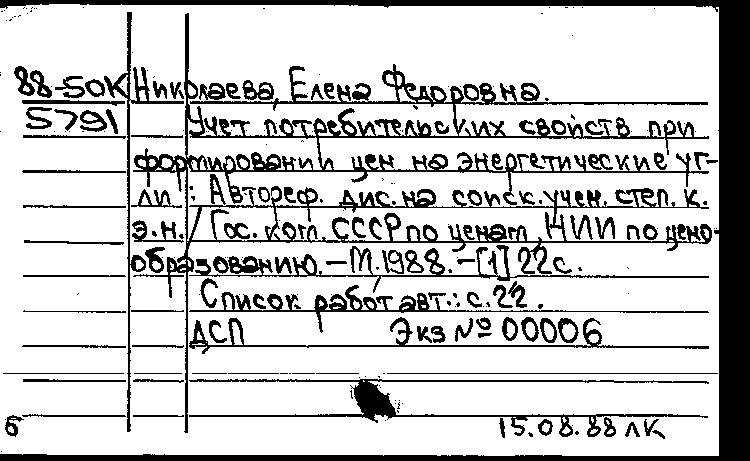 88-50К Николаева, Елена Федоровна.
5791 Учет потребительских свойств при
формировании цен на энергетические уг-
ли : Автореф. дис. на соиск. учен. степ. к.
э.н. / Гос. ком. СССР по ценам, НИИ по цено-
образованию. – М. 1988. – [1] 22 с.
Список работ авт.: с. 22.
ДСП Экз № 00006
б 15.08.88 ЛК